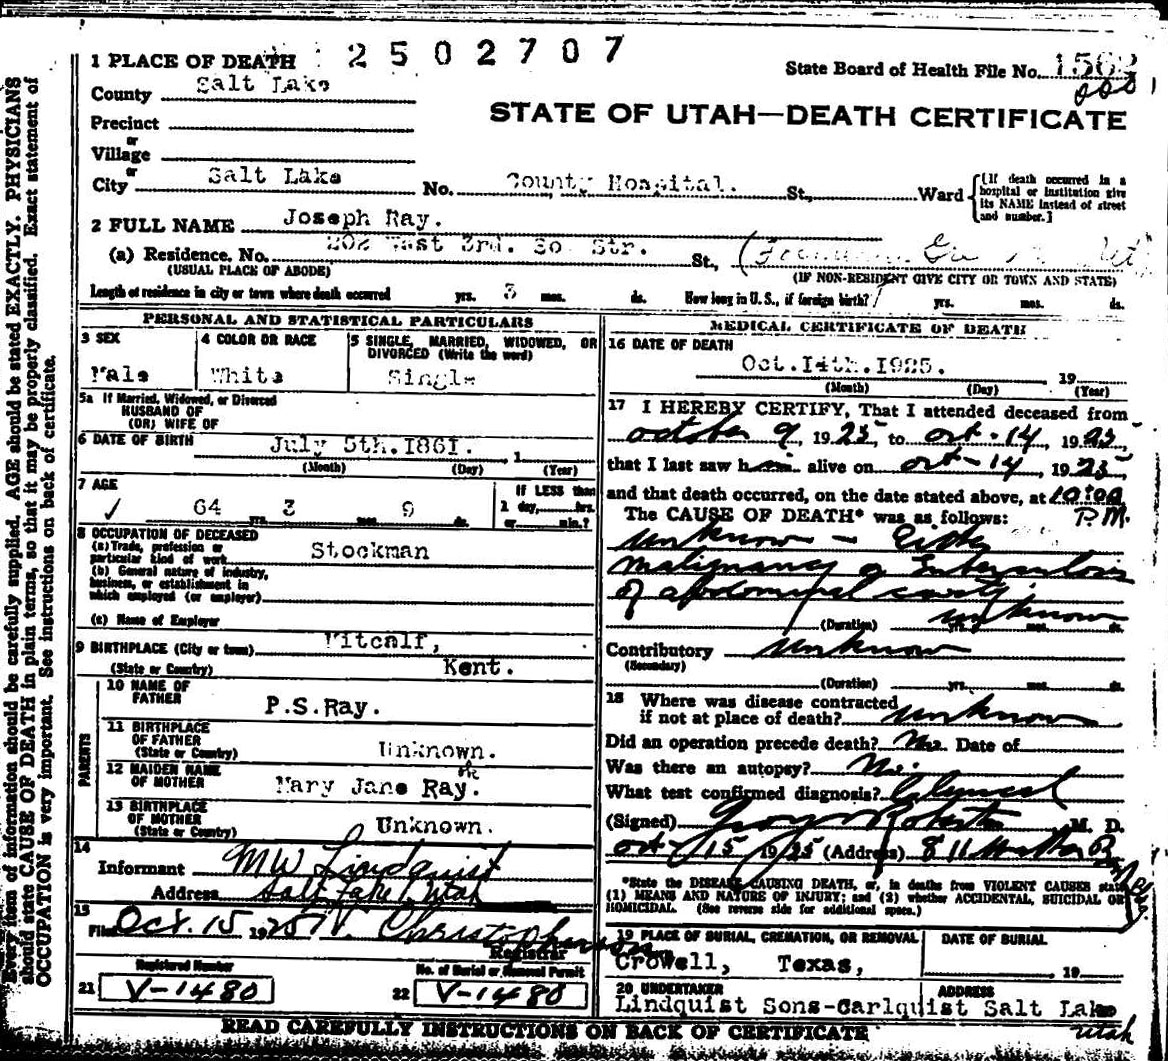 Every item of information should be carefully supplied. AGE should be stated EXACTLY. PHYSICIANS
should state CAUSE OF DEATH in plain terms, so that it may be properly classified. Exact statement of
OCCUPATION is very important. See instructions on back of certificate.
2502707
1 PLACE OF DEATH
State Board of Health File No. 1562
County Salt Lake
STATE OF UTAH—DEATH CERTIFICATE
Precinct
or
Village
or
City Salt Lake No. County Hospital. St., Ward
[If death occurred in a
hospital or institution give
its NAME instead of street
and number.]
2 FULL NAME Joseph Ray.
(a) Residence. No. 202 West 3rd. So Str. St.,
(USUAL PLACE OF ABODE) (IF NON-RESIDENT GIVE CITY OR TOWN AND STATE)
Length of residence in city or town where death occurred yrs. 3 mos. ds. How long in U.S., if foreign birth? yrs. mos. ds.
PERSONAL AND STATISTICAL PARTICULARS
3 SEX Male
4 COLOR OR RACE White
5 SINGLE, MARRIED, WIDOWED, OR
DIVORCED (Write the word)
Single
5a If Married, Widowed, or Divorced
HUSBAND OF
(OR) WIFE OF
6 DATE OF BIRTH July 5th. 1861. 1
(Month) (Day) (Year)
7 AGE 64 yrs. 3 mos. 9 ds.
If LESS than
1 day, hrs.
or min.?
8 OCCUPATION OF DECEASED
(a) Trade, profession or
particular kind of work Stockman
(b) General nature of industry,
business, or establishment in
which employed (or employer)
(c) Name of Employer
9 BIRTHPLACE (City or town) Mitcalf,
(State or Country) Kent.
PARENTS
10 NAME OF
FATHER P.S.Ray.
11 BIRTHPLACE
OF FATHER
(State or Country) Unknown.
12 MAIDEN NAME
OF MOTHER Mary Jane Ray. ok
13 BIRTHPLACE
OF MOTHER
(State or Country) Unknown.
14
Informant MW Lindquist
Address Salt Lake, Utah
15
Filed Oct. 15 1925 Christopherson
Registrar
Registered Number
21 V-1480
No. of Burial or Removal Permit
22 V-1480
MEDICAL CERTIFICATE OF DEATH
16 DATE OF DEATH
Oct.14th.1925. 19
(Month) (Day) (Year)
17 I HEREBY CERTIFY, That I attended deceased from
October 9, 1925 to Oct-14, 1925
that I last saw him alive on Oct-14, 1925
and that death occurred, on the date stated above, at 10:00
P.M.
The CAUSE OF DEATH* was as follows:
unknow - Either
malignancy or Tuberculosis
of abdominal cavity
(Duration) unknow yrs. mos. ds.
Contributory unknow
(Secondary)
(Duration) yrs. mos. ds.
18 Where was disease contracted
if not at place of death? unknow
Did an operation precede death? No. Date of
Was there an autopsy? No.
What test confirmed diagnosis? Clinical
(Signed) Roberts M. D.
Oct-15 1925 (Address) 811
*State the DISEASE CAUSING DEATH, or, in deaths from VIOLENT CAUSES state
(1) MEANS AND NATURE OF INJURY; and (2) whether ACCIDENTAL, SUICIDAL OR
HOMICIDAL. (See reverse side for additional space.)
19 PLACE OF BURIAL, CREMATION, OR REMOVAL
Crowell, Texas,
DATE OF BURIAL
, 19
20 UNDERTAKER ADDRESS
Lindquist Sons-Carlquist Salt Lake
Utah
READ CAREFULLY INSTRUCTIONS ON BACK OF CERTIFICATE